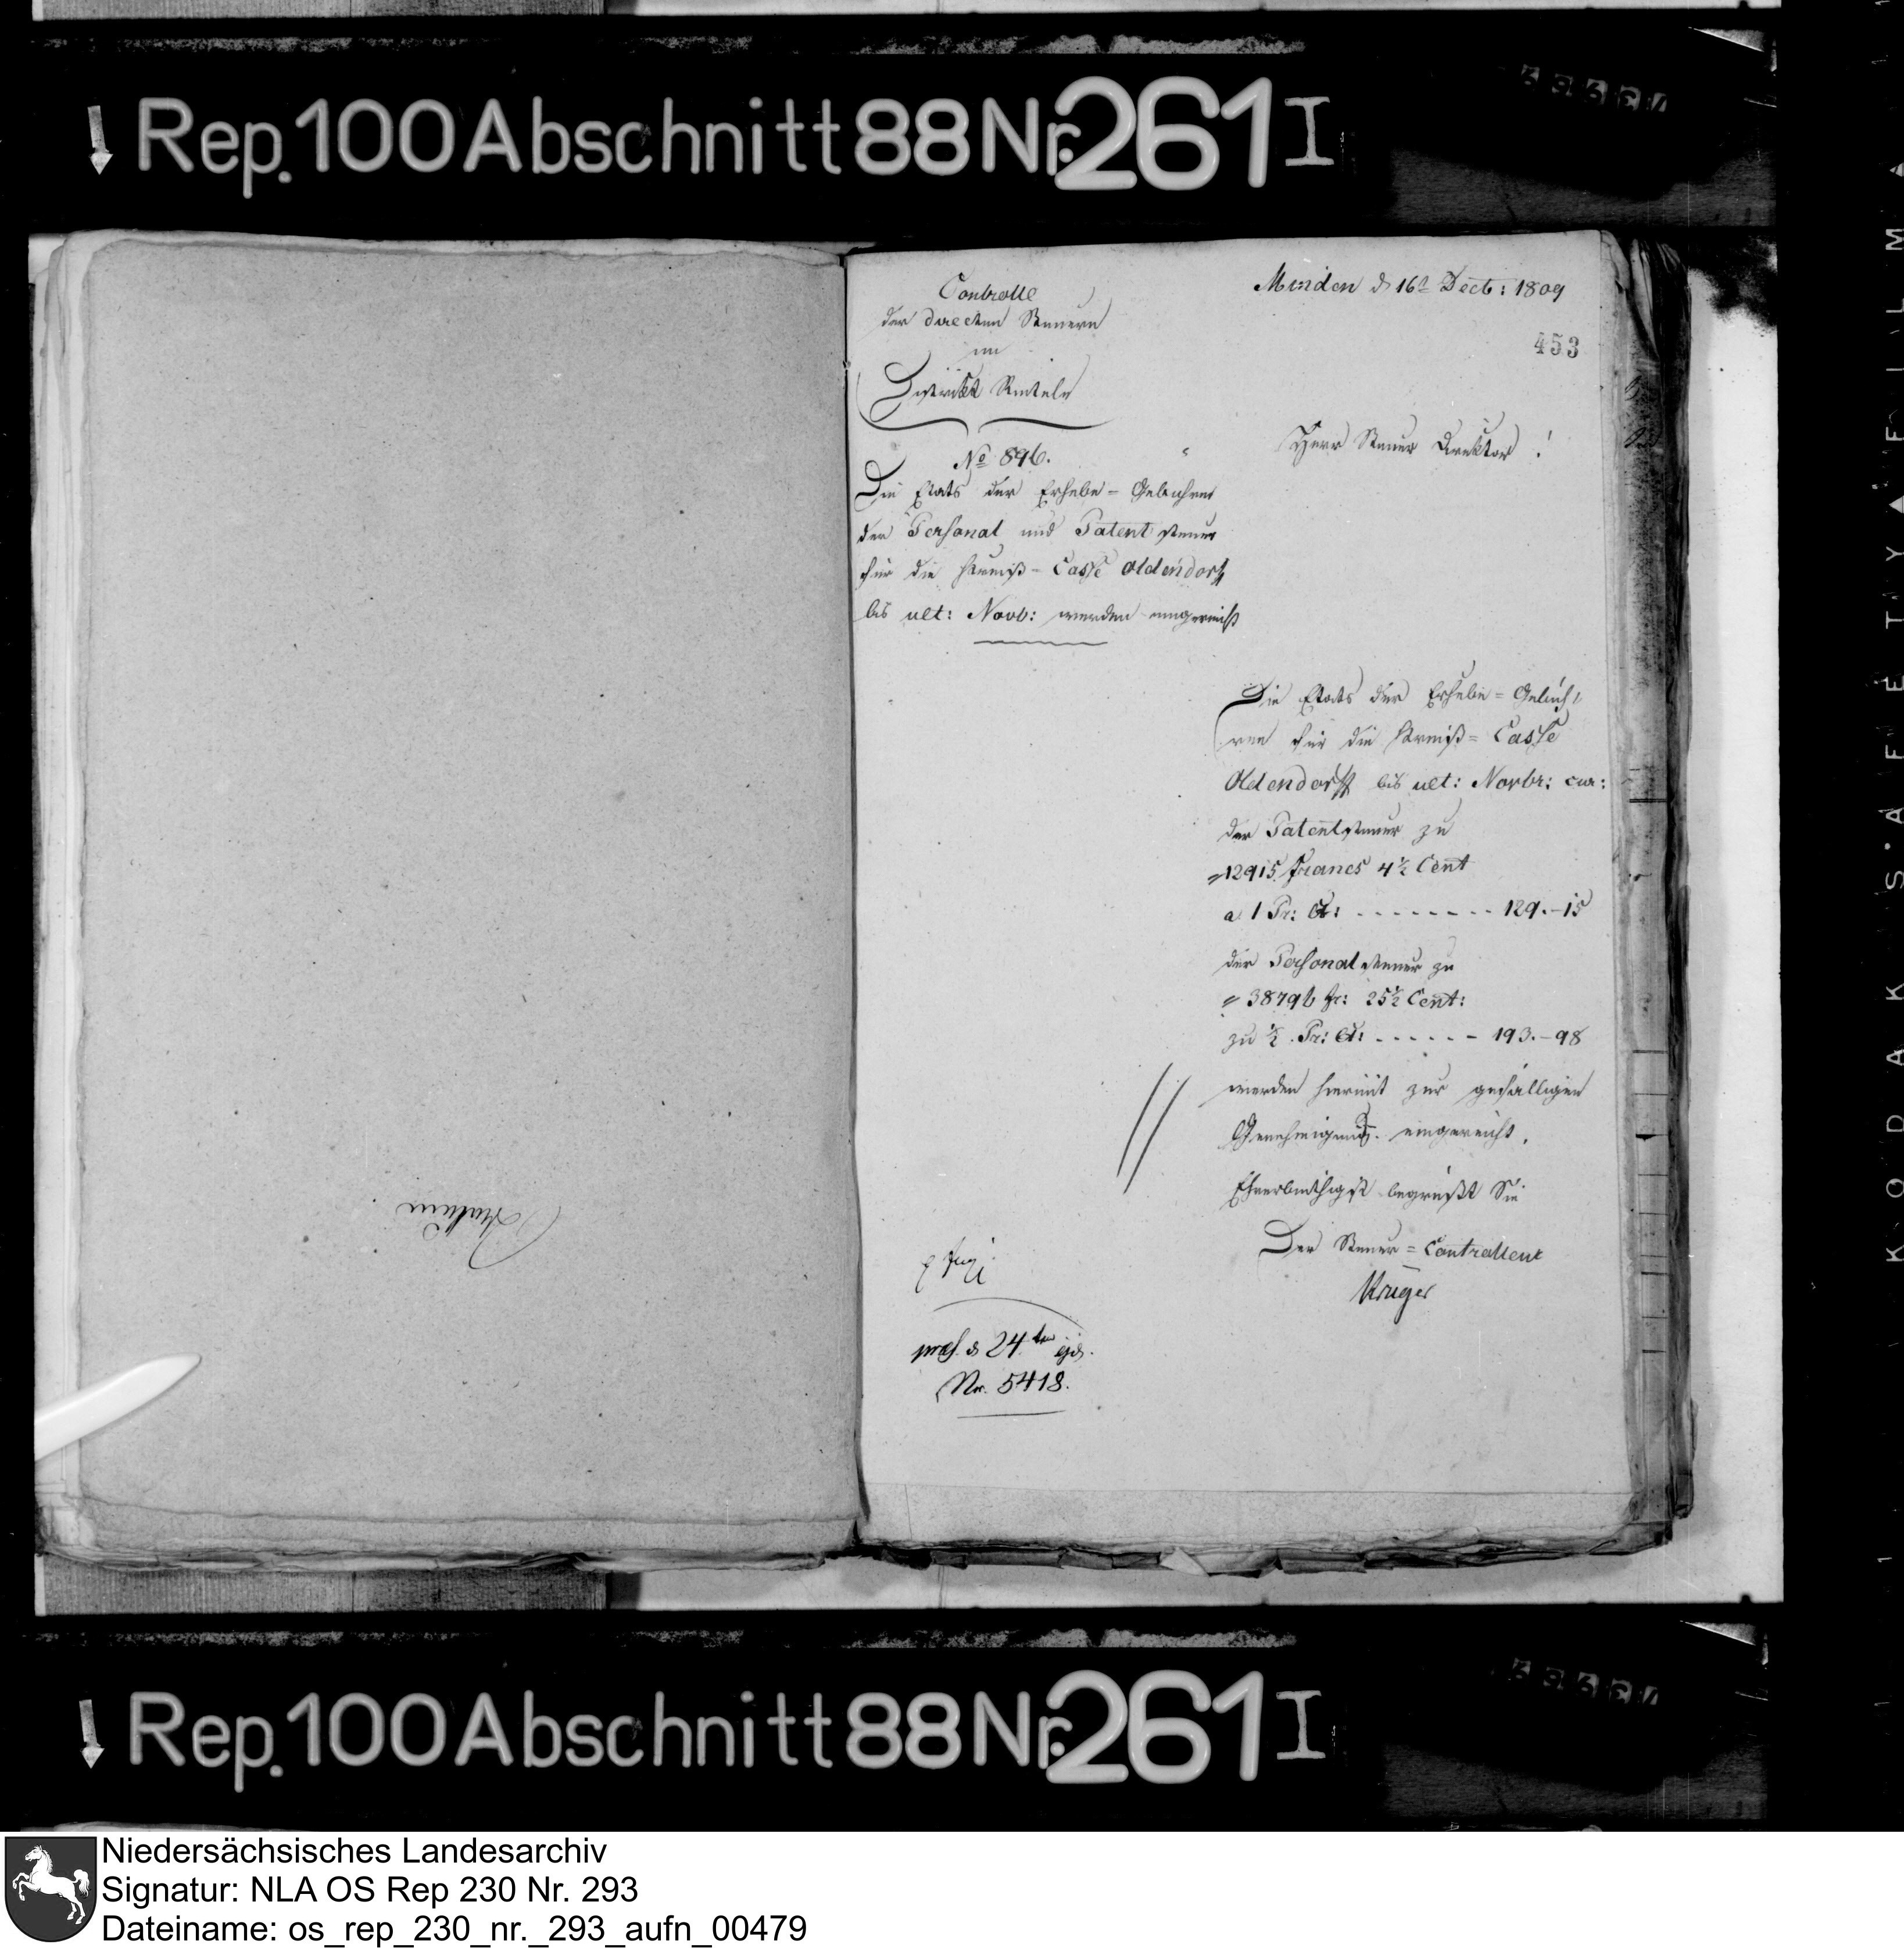 Rep. 100 Abschnitt 88 Nr. 261 I
Controlle
der directen Steuern
im
District Rinteln
No 896.
Die Etats der Erhebe-Gebühren
der Personal und Patentsteuer
für die Kreiß-Casse Oldendorff
bis ult: Novb: werden eingereicht
Minden d 16t Decb: 1809
453
Herr Steuer Direktor!
Die Etats der Erhebe-Gebüh,
ren für die Kreiß-Casse
Oldendorff bis ult: Novbr: cur:
der Patentsteuer zu
12915 Francs 4½ Cent
a 1 Pr: Ct: - - - - - - - - 129.-15
der Personalsteuer zu
38796 fr: 25½ Cent:
zu ½ Pr: Ct: - - - - - - 193.-98
werden hiermit zur gefälligen
Genehmigung eingereicht.
Ehrerbiethigst begrüßt Sie
Der Steuer-Controlleur
Krüger
praes. d 24ten ejd.
Nr. 5418.
Rep. 100 Abschnitt 88 Nr. 261 I
KODAK S.A.F.E.T.Y. FILM
Niedersächsisches Landesarchiv
Signatur: NLA OS Rep 230 Nr. 293
Dateiname: os_rep_230_nr._293_aufn_00479